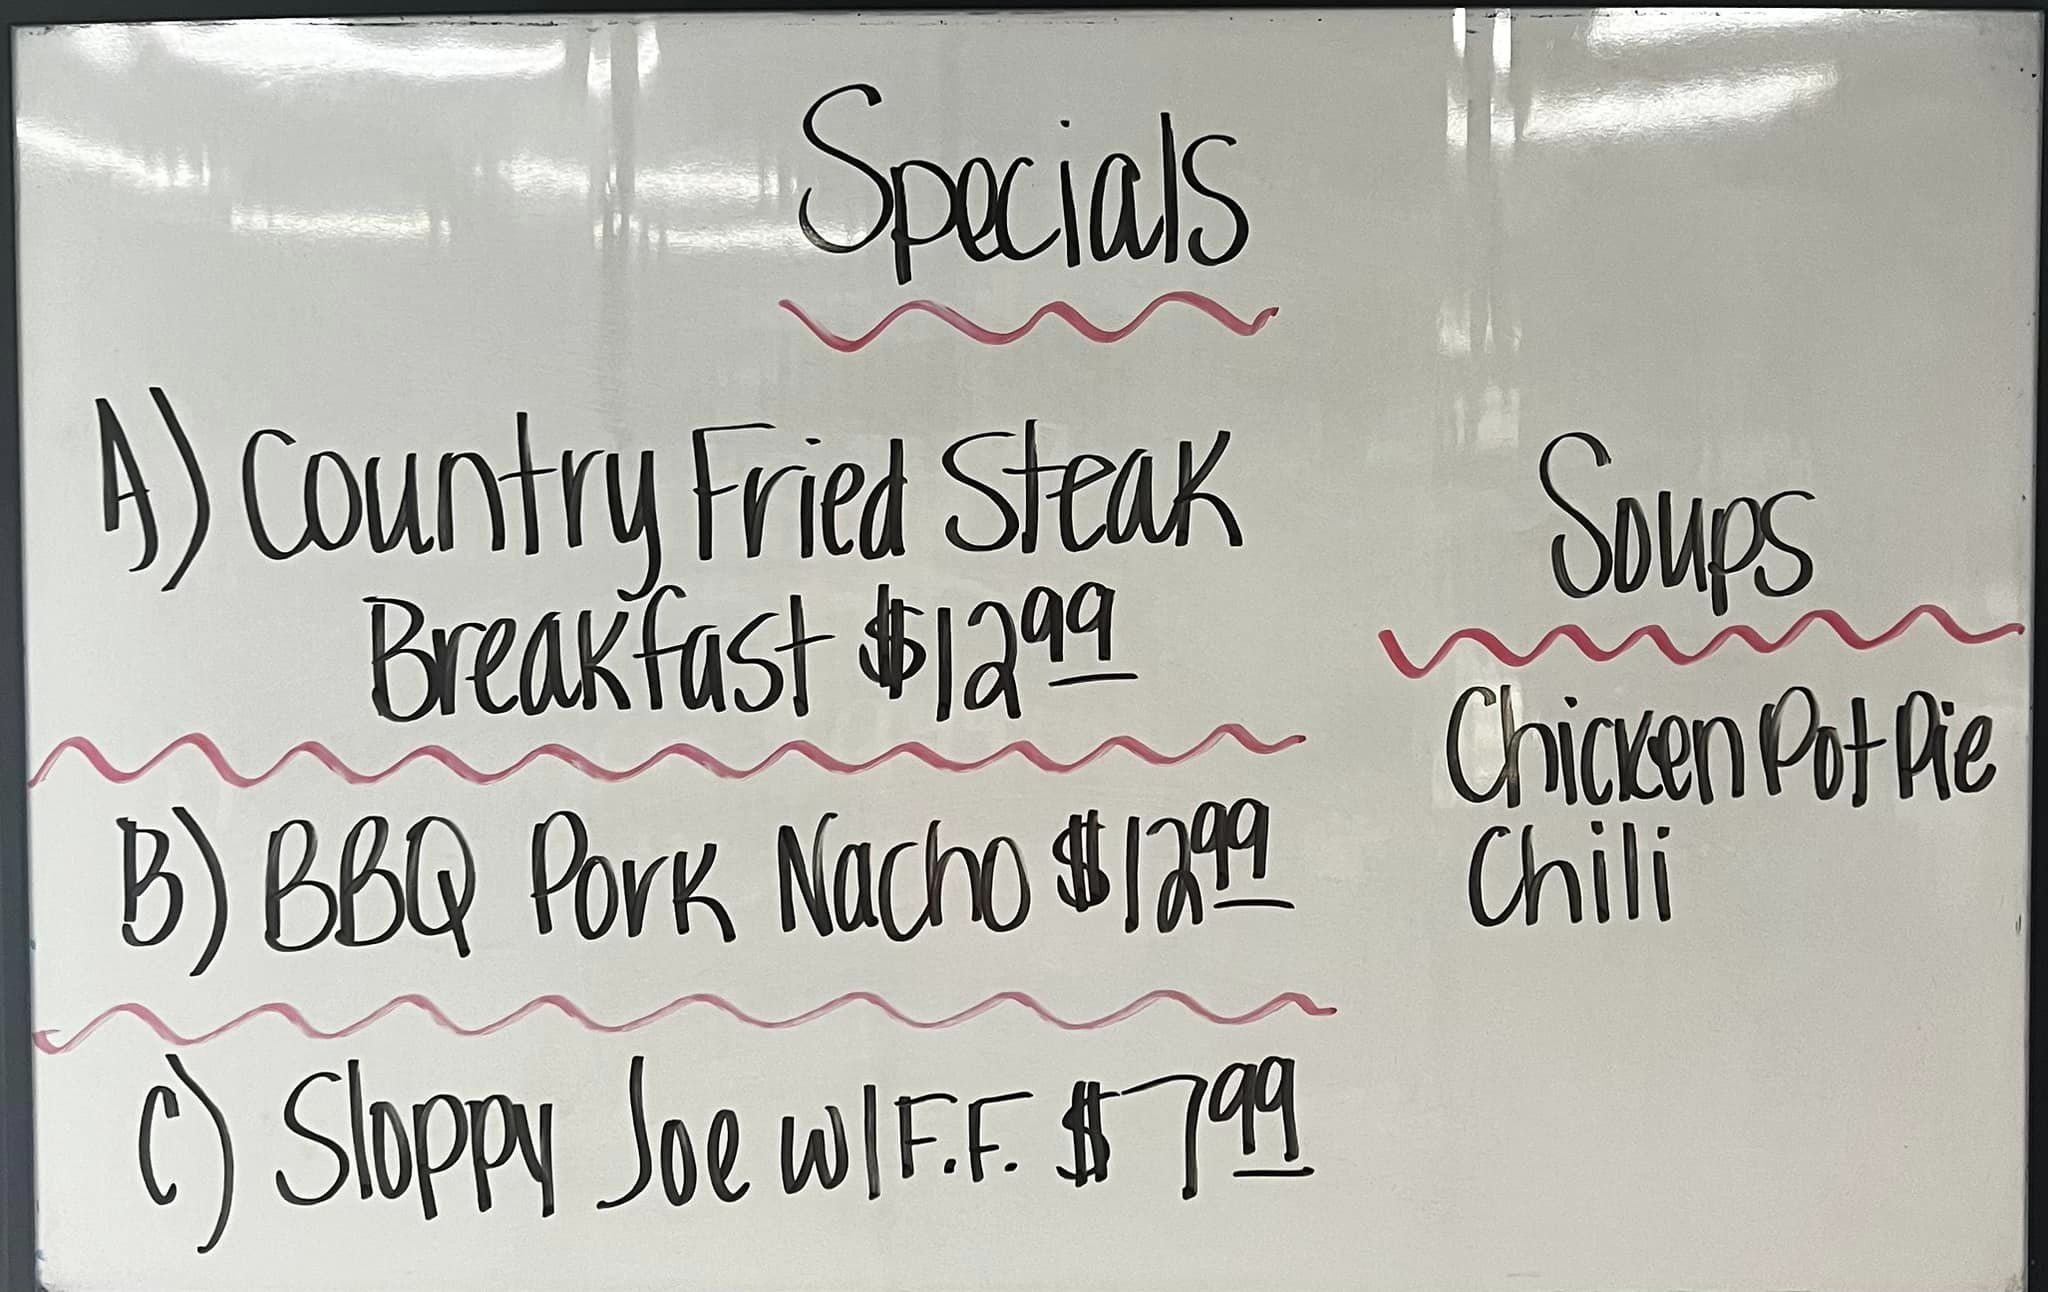 Specials
A) Country Fried Steak
Breakfast $12.99
B) BBQ Pork Nacho $12.99
C) Sloppy Joe w/ F.F. $7.99
Soups
Chicken Pot Pie
Chili